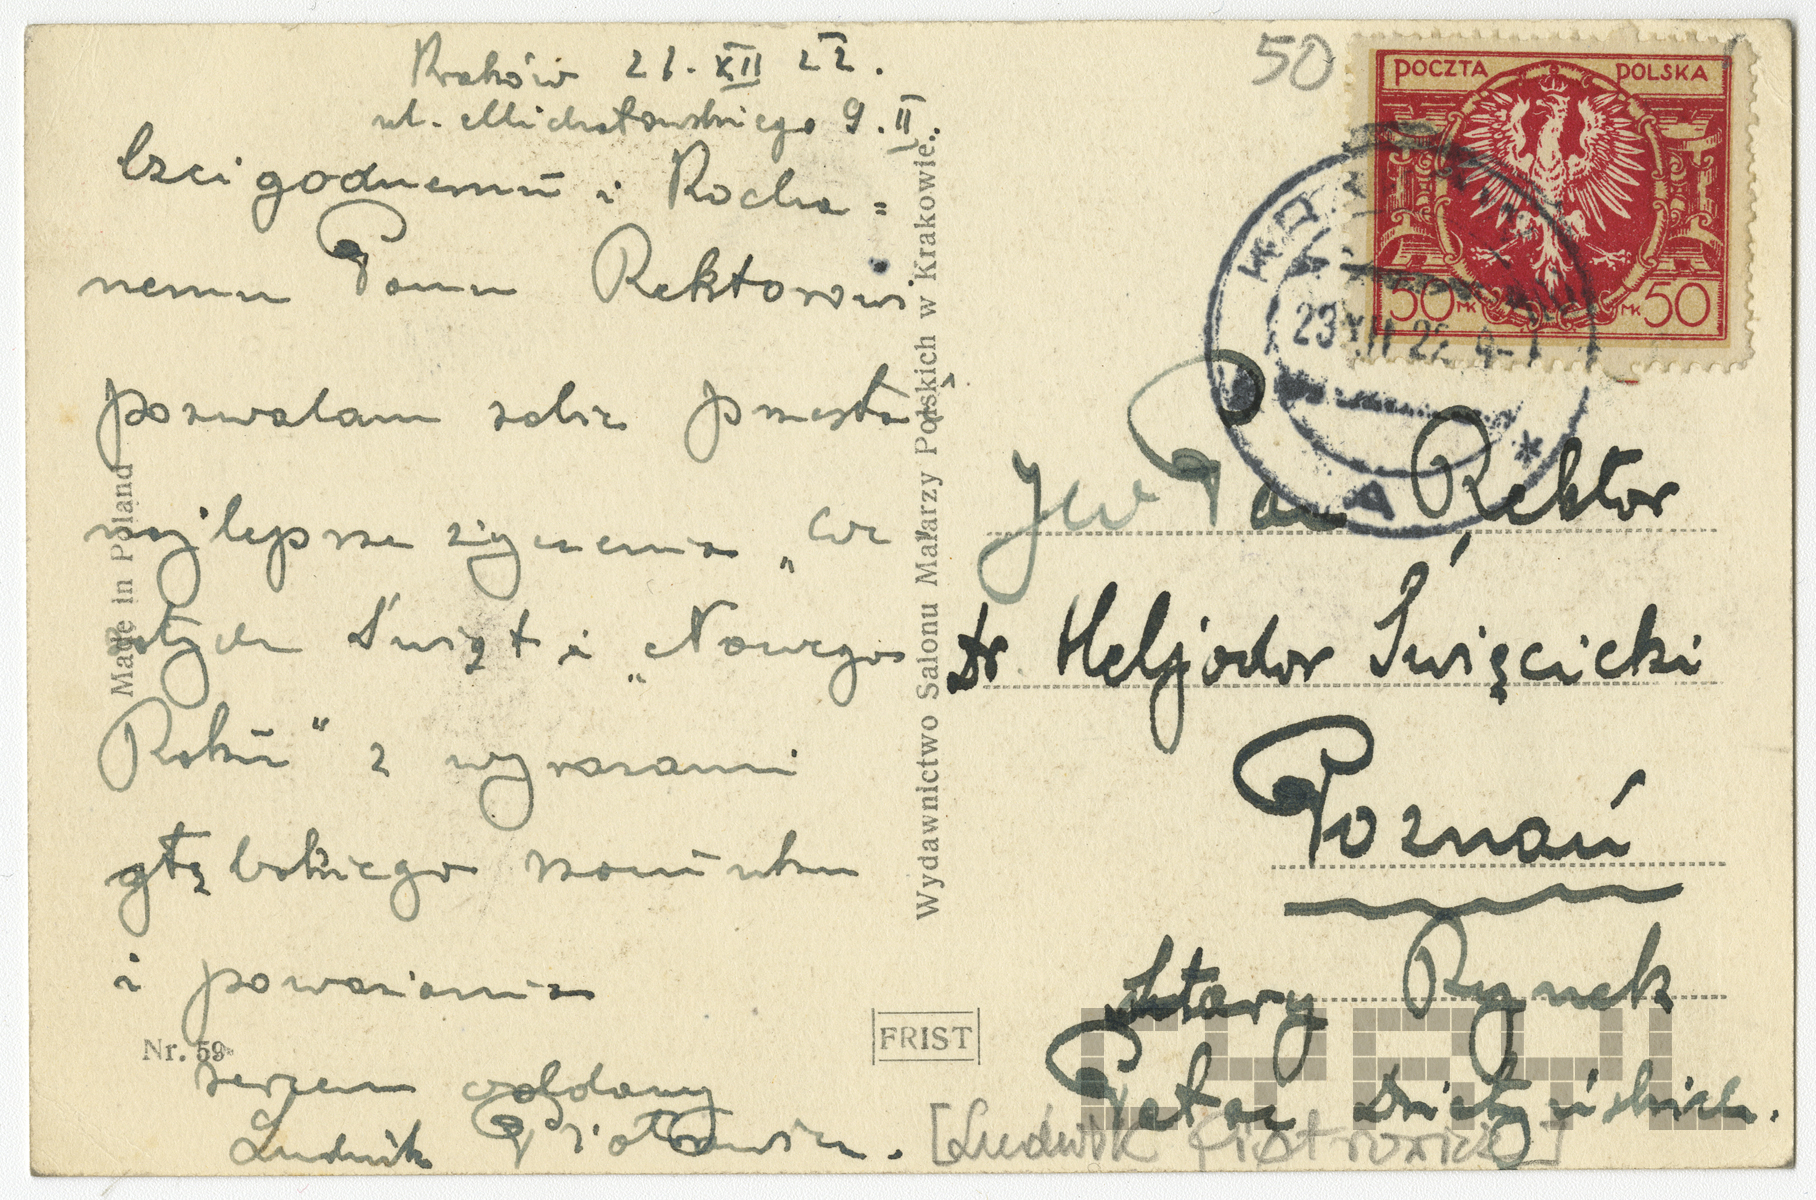 Kraków 21. XII 22.
ul. Michałowskiego 9. II.
Czcigodnemu i Kocha=
nemu Panu Rektorowi
pozwalam sobie przesłać
najlepsze życzenia „We
sołych Świąt i „Nowego
Roku" z wyrazami
głębokiego szacunku
i poważania
sercem oddany
Ludwik Piotrowicz.
Made in Poland
Nr. 59
Wydawnictwo Salonu Malarzy Polskich w Krakowie.
FRIST
50
POCZTA POLSKA
50 MK MK 50
23 XII 22
A
*
JW Pan Rektor
Dr Heljodor Święcicki
Poznań
Stary Rynek
Pałac Działyńskich.
[Ludwik Piotrowicz]